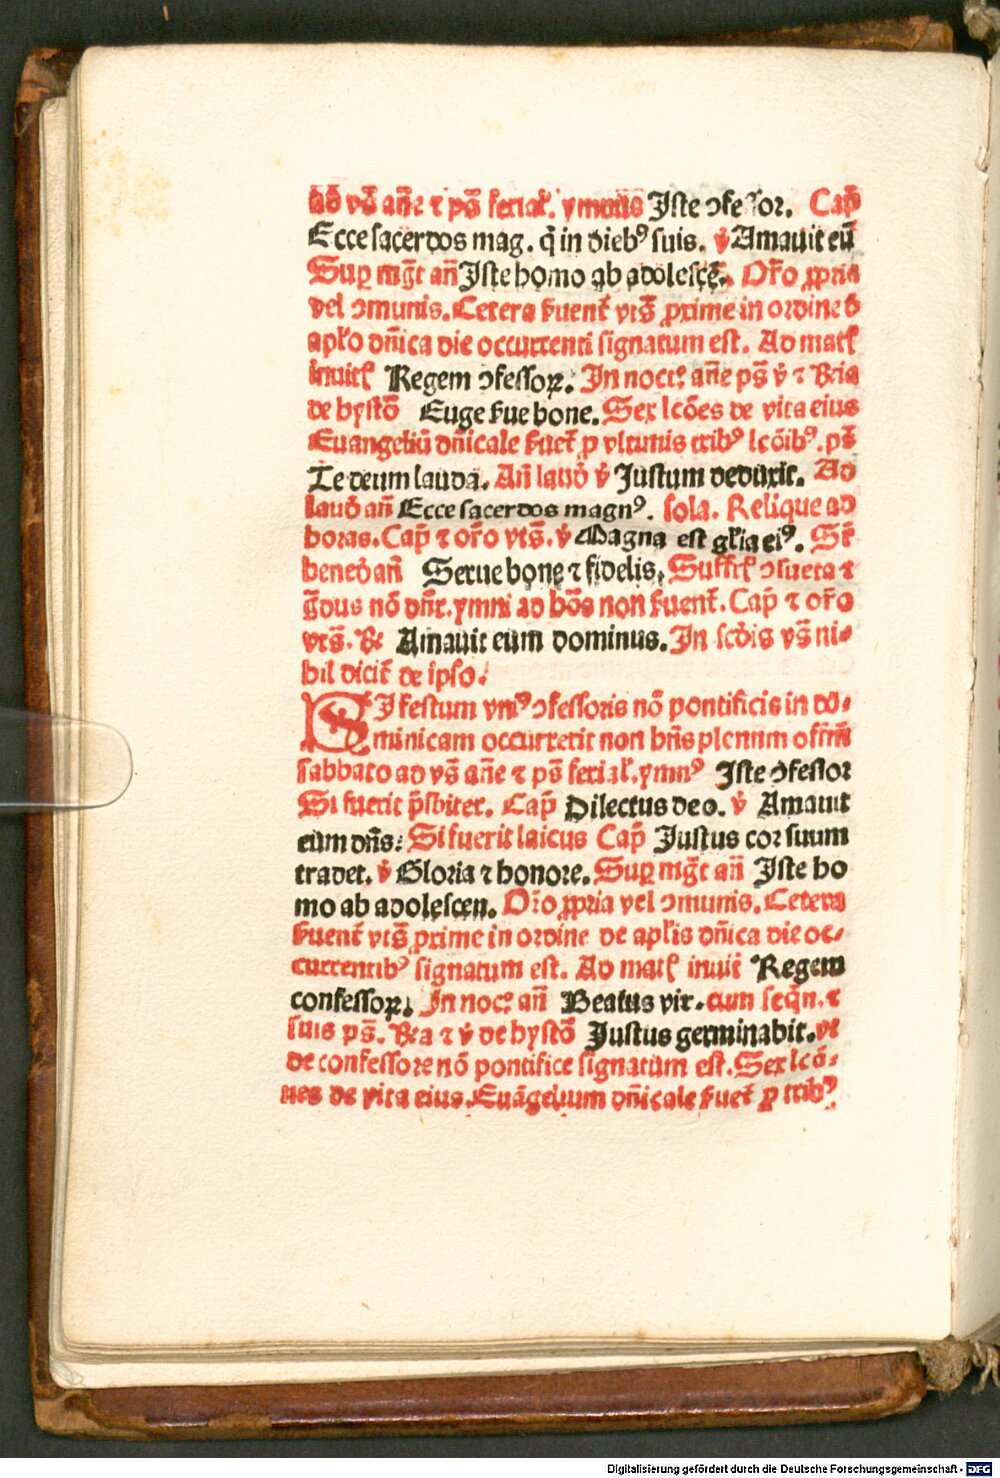 ad vꝭ̃ añe ⁊ pꝭ̃ ferial̕. ymnus Iste ↄfessor. Cap̃
Ecce sacerdos mag. q̇ in dieb⁹ suis. v̇ Amauit eũ
Suꝑ mg̃t añ Iste homo ab adolescẽ. Or̃o ꝓpria
vel ↄmunis. Cetera ẜuent̕ vts̃ ꝓxime in ordine d̕
apl̕o dñica die occurrenti signatum est. Ad matꝭ
inuitꝭ Regem ↄfessoꝝ. In noct⁹ añe ps̃ v̇ ⁊ ℞ia
de hystõ Euge ẜue bone. Sex lcões de vita eius
Euangeliũ dñicale ẜuet̕ ꝓ vltimis trib⁹ lcõib⁹. ps̃
Te deum laudã. Añ laud̕ v̇ Iustum deduxit. Ad
laud̕ añ Ecce sacerdos magn⁹. sola. Relique ad
horas. Cap̃ ⁊ or̃o vts̃. v̇ Magna est gl̕ia ei⁹. Sr̃
bened̕ añ Serue bone ⁊ fidelis. Suffrꝭ ↄsueta ⁊
g̃dus nõ dñr. ymni ad hõs non ẜuent̕. Cap̃ ⁊ or̃o
vts̃. ℞ Amauit eum dominus. In scd̕is vs̃ ni⸗
hil dicit̕ de ipso.
SI festum vni⁹ ↄfessoris nõ pontificis in do⸗
minicam occurrerit non hñs plenum offm̃
sabbato ad vs̃ añe ⁊ ps̃ ferial̕. ymn⁹ Iste ↄfessor
Si fuerit p̃sbiter. Cap̃ Dilectus deo. v̇ Amauit
eum dñs: Si fuerit laicus Cap̃ Iustus cor suum
tradet. v̇ Gloria ⁊ honore. Suꝑ mg̃t añ Iste ho
mo ab adolescen. Or̃o ꝓpria vel ↄmunis. Cetera
ẜuent̕ vts̃ ꝓxime in ordine de apl̕is dñica die oc⸗
currentib⁹ signatum est. Ad matꝭ inuit̕ Regem
confessoꝝ. In noc⁹ añ Beatus vir. cun seq̃n. ⁊
suis ps̃. ℞a ⁊ v̇ de hystõ Iustus germinabit. vt
de confessore nõ pontifice signatum est. Sex lcõ⸗
nes de vita eius. Euãgelium dñicale ẜuet̕ ꝓ trib⁹
Digitalisierung gefördert durch die Deutsche Forschungsgemeinschaft - DFG